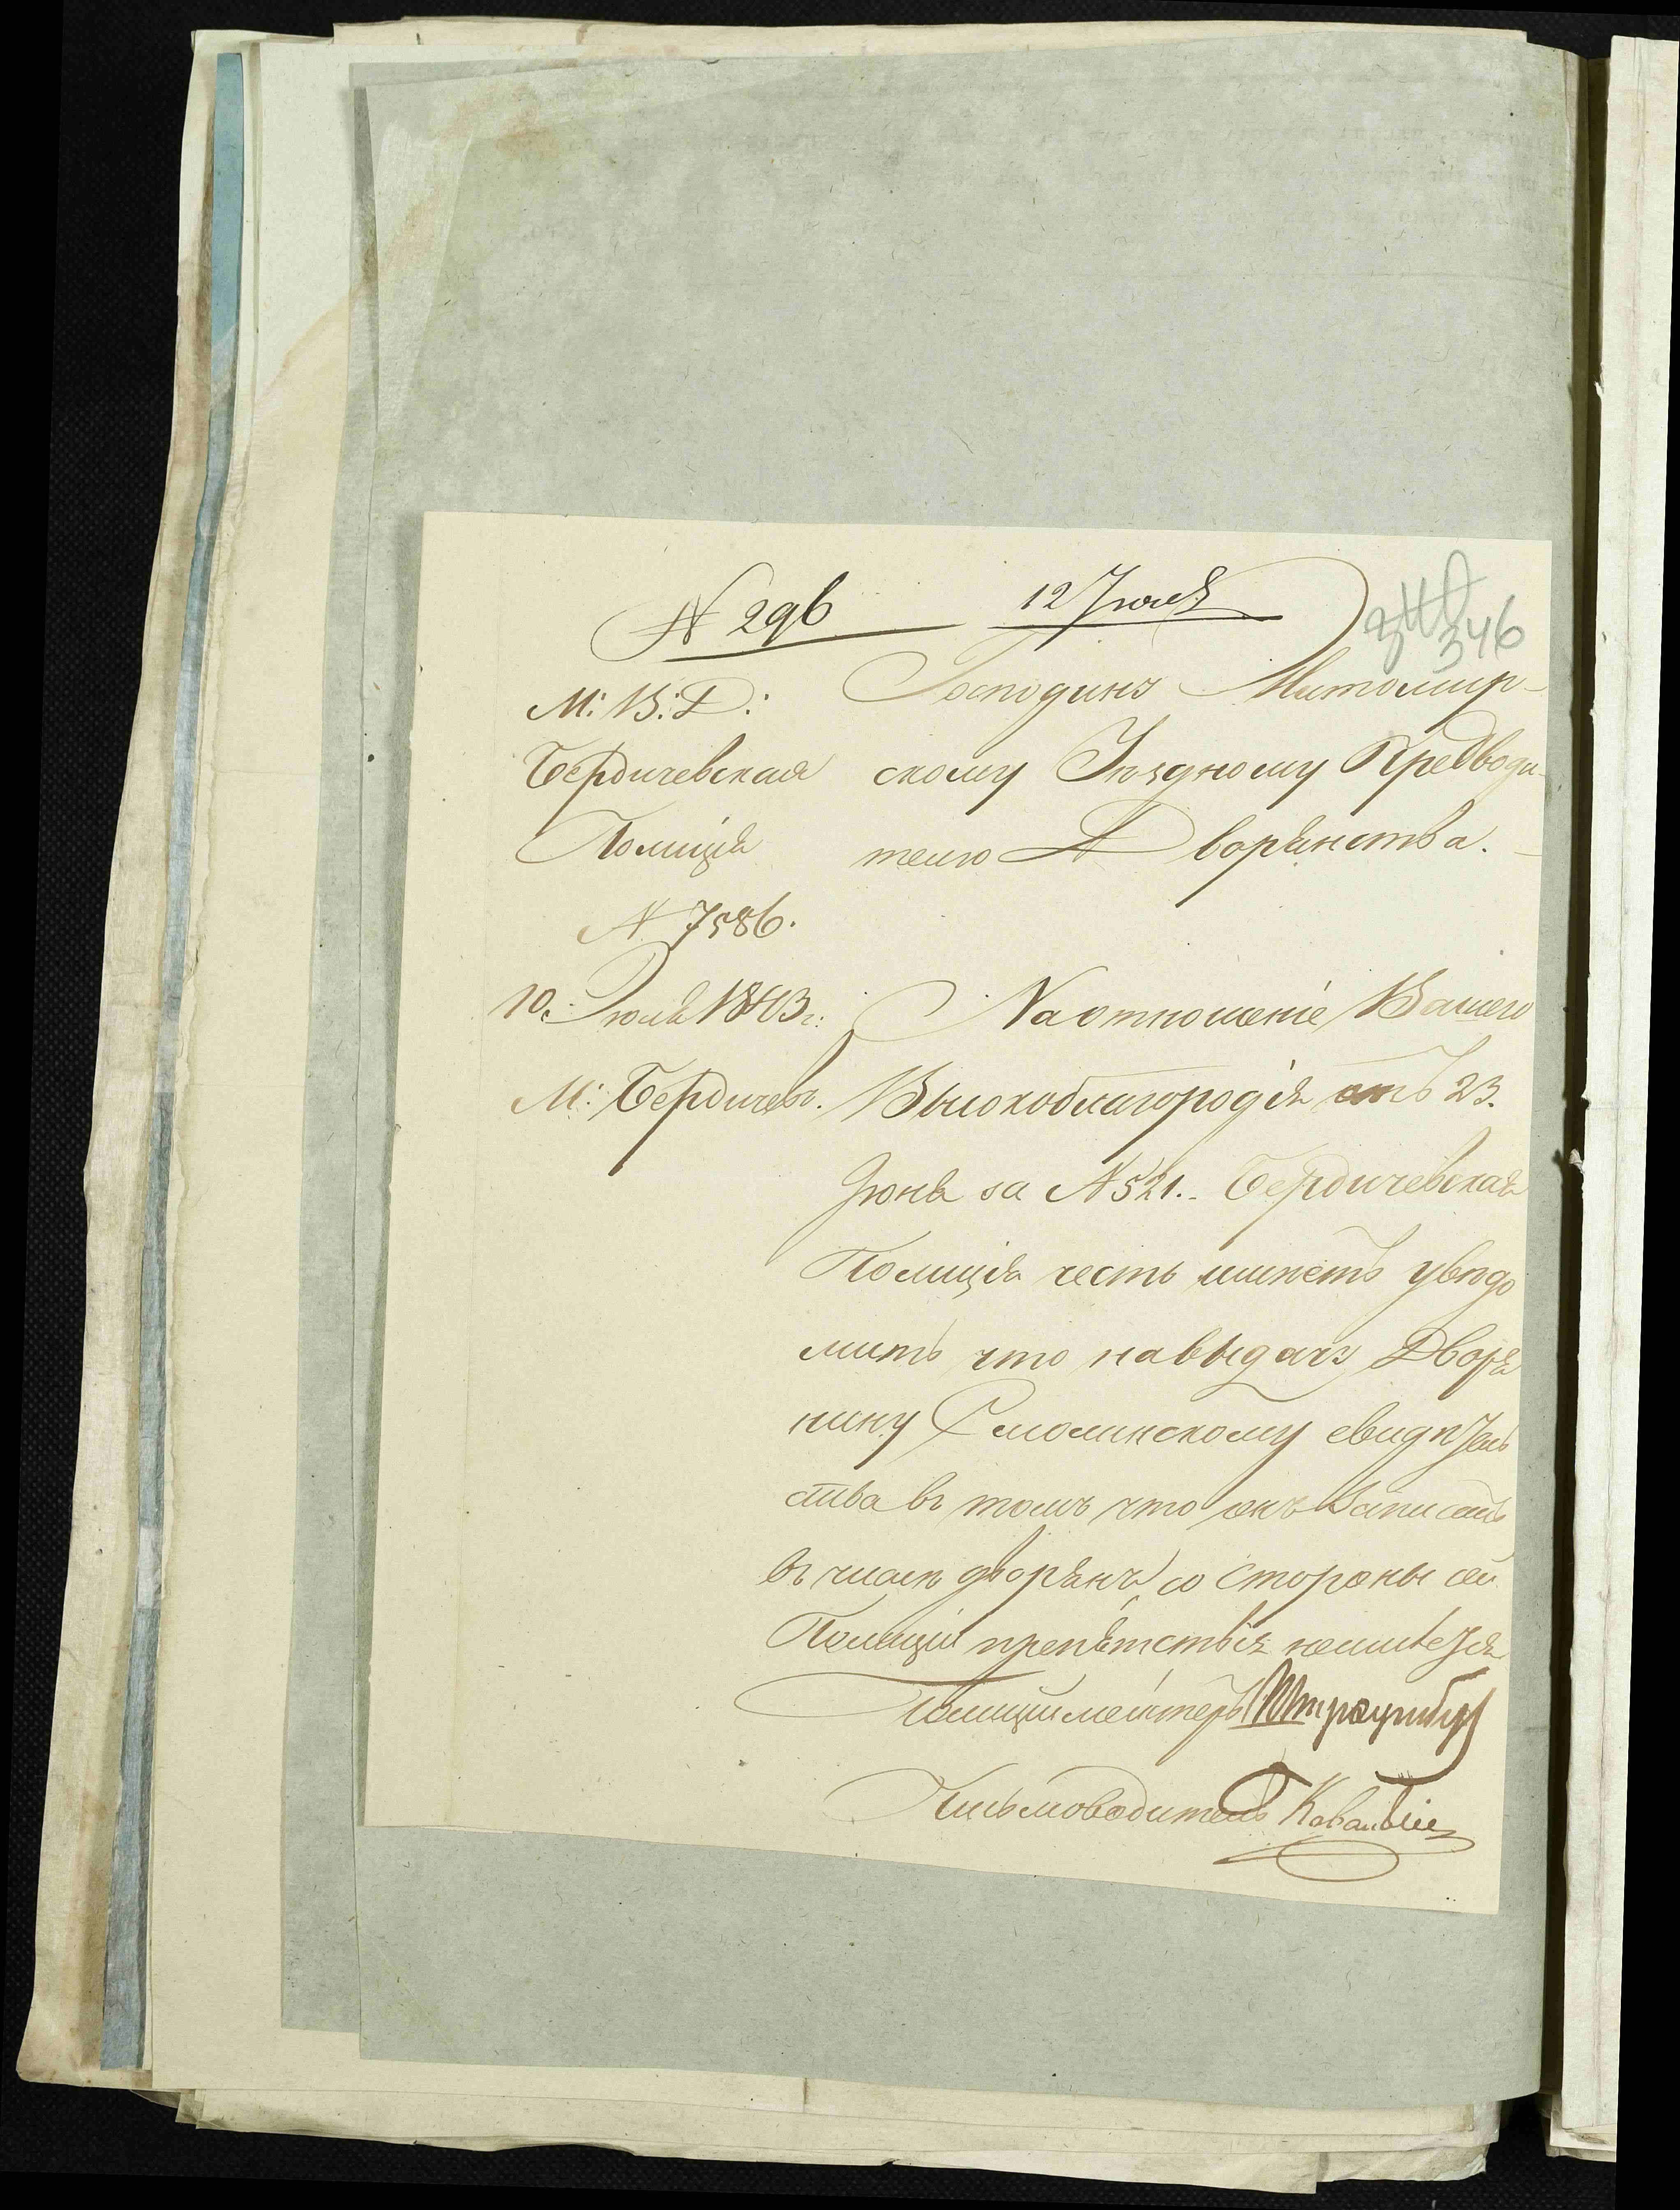 № 296 12 Июля
346
М: В: Д:
Бердичевская
Полиція
№ 7586.
10. Июля 1843 г:
М: Бердичевъ.
Господину Житомир-
скому Уѣздному Предводи-
телю Дворянства.
На отношеніе Вашего
Высокоблагородія отъ 23.
Июня за № 521. Бердичевская
Полиція честь имѣетъ увѣдо
мить что на выдачу Дворя
нину Смолинскому свидѣтель
ства въ томъ что онъ Записанъ
въ числѣ дворянъ со стороны сей
Полиціи препятствія неимѣется
Полицімейстеръ
Письмоводитель